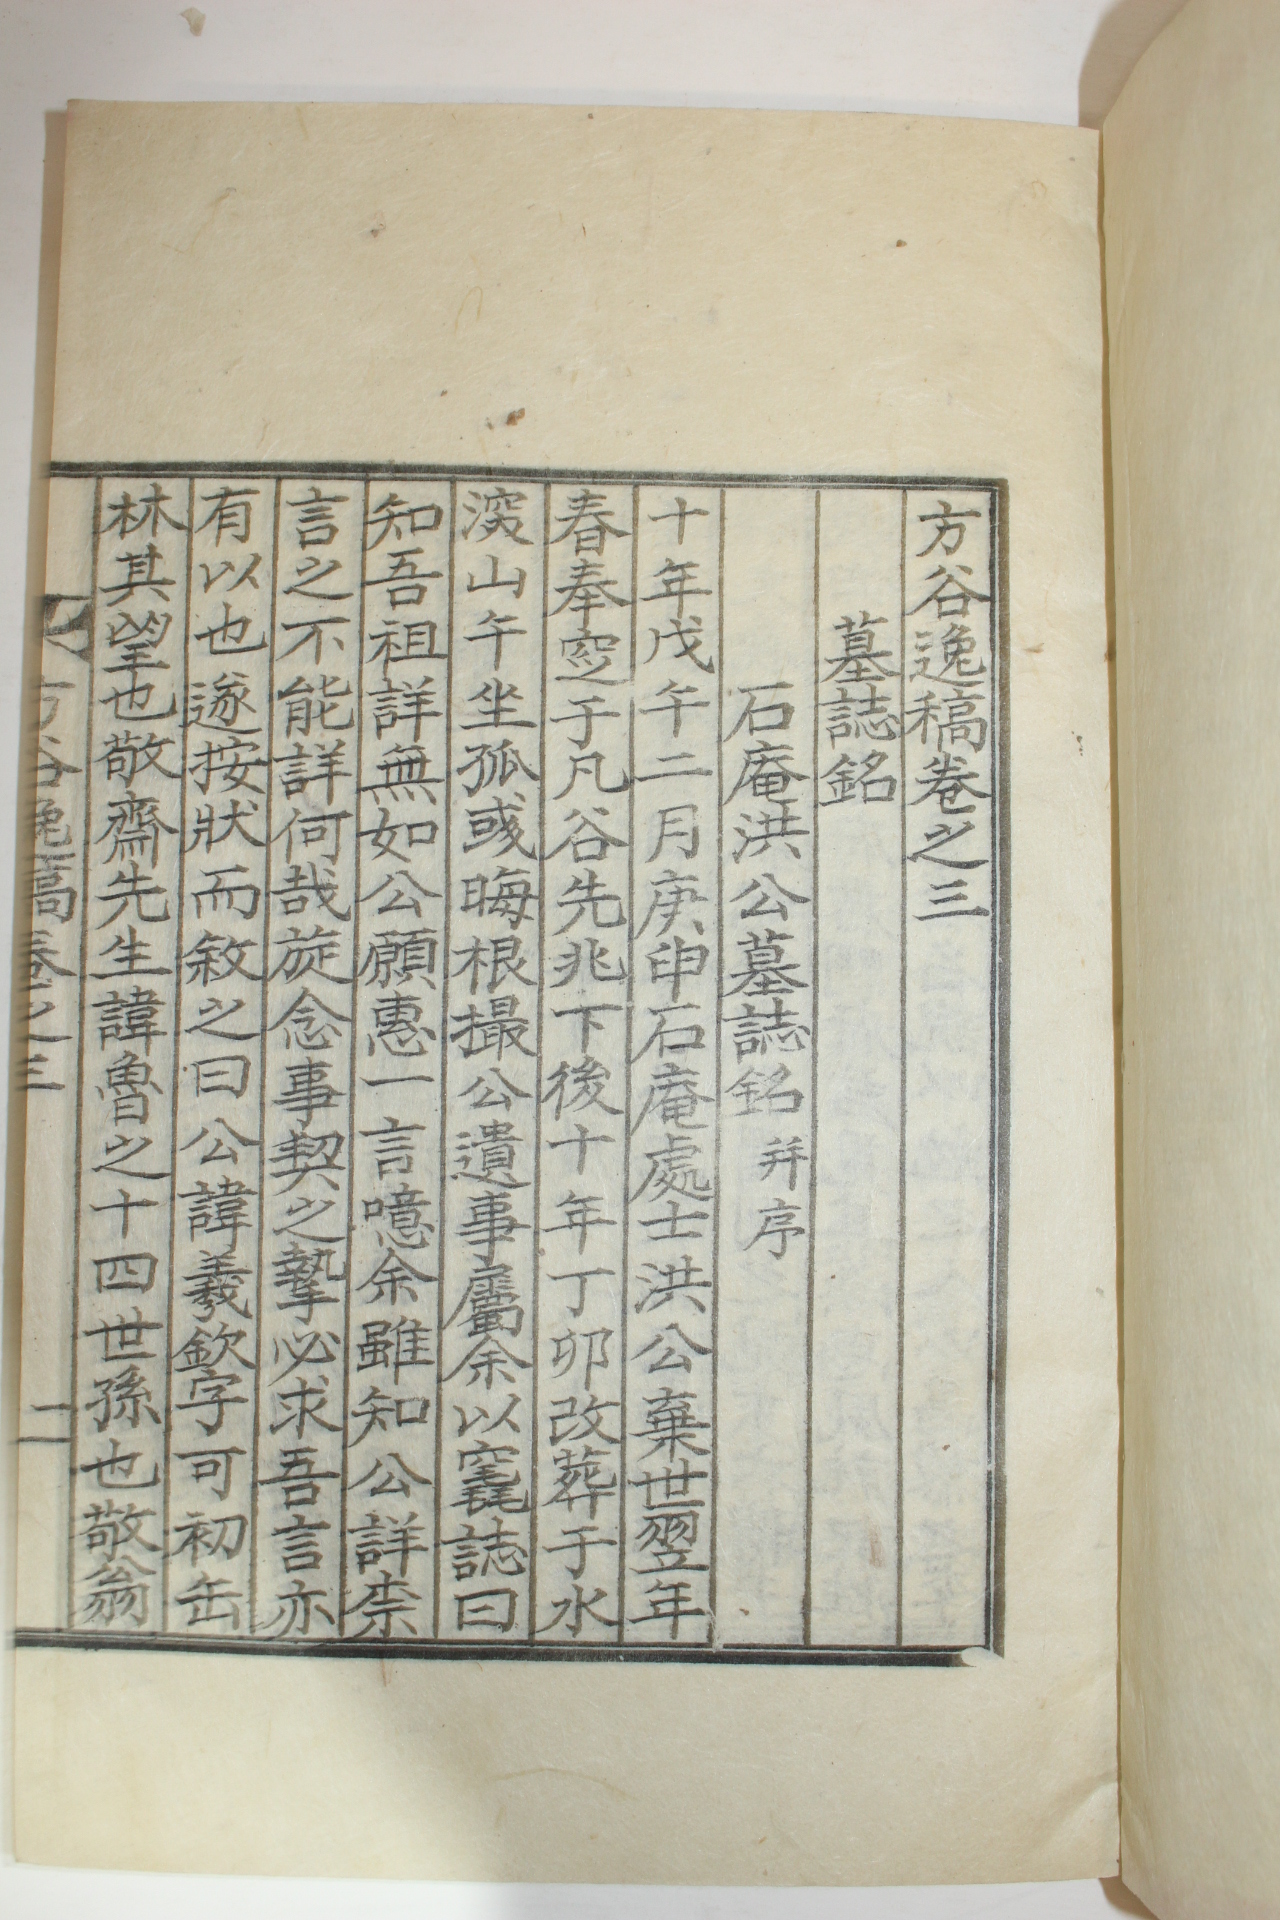 方谷逸稿卷之三
墓誌銘
石庵洪公墓誌銘 并序
十年戊午二月庚申石庵處士洪公棄世翌年
春奉窆于凡谷先兆下後十年丁卯改葬于水
湥山午坐孤彧晦根撮公遺事屬余以竁誌曰
知吾祖詳無如公願惠一言噫余雖知公詳柰
言之不能詳何哉旋念事契之摯必求吾言亦
有以也遂按狀而敘之曰公諱羲欽字可初缶
林其望也敬齋先生諱魯之十四世孫也敬翁
方谷逸稿卷之三
一